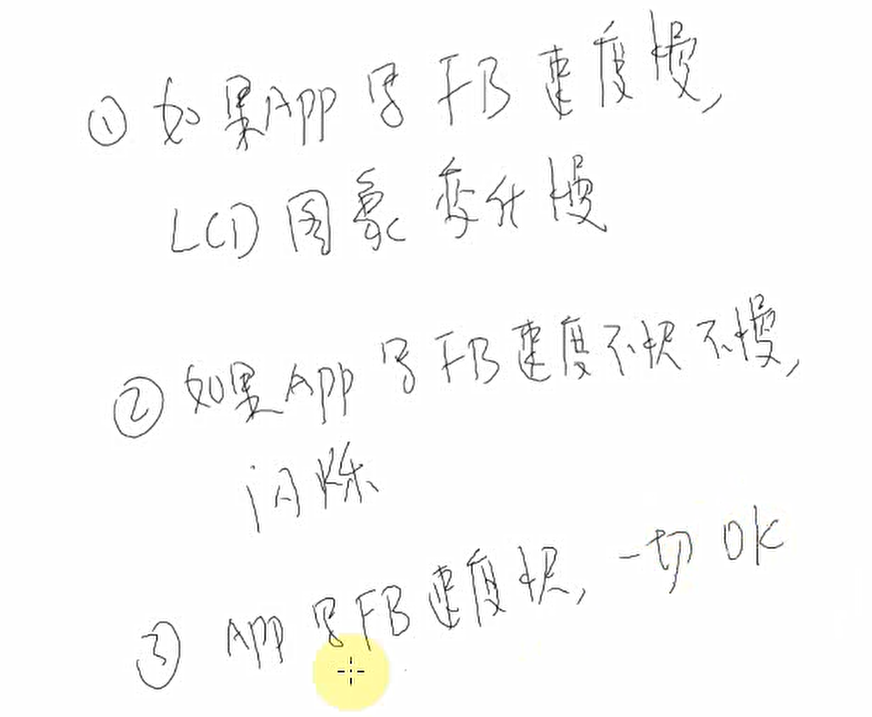 ① 如果APP写FB速度慢,
LCD图象变化慢
② 如果APP写FB速度不快不慢,
闪烁
③ APP写FB速度快,一切OK